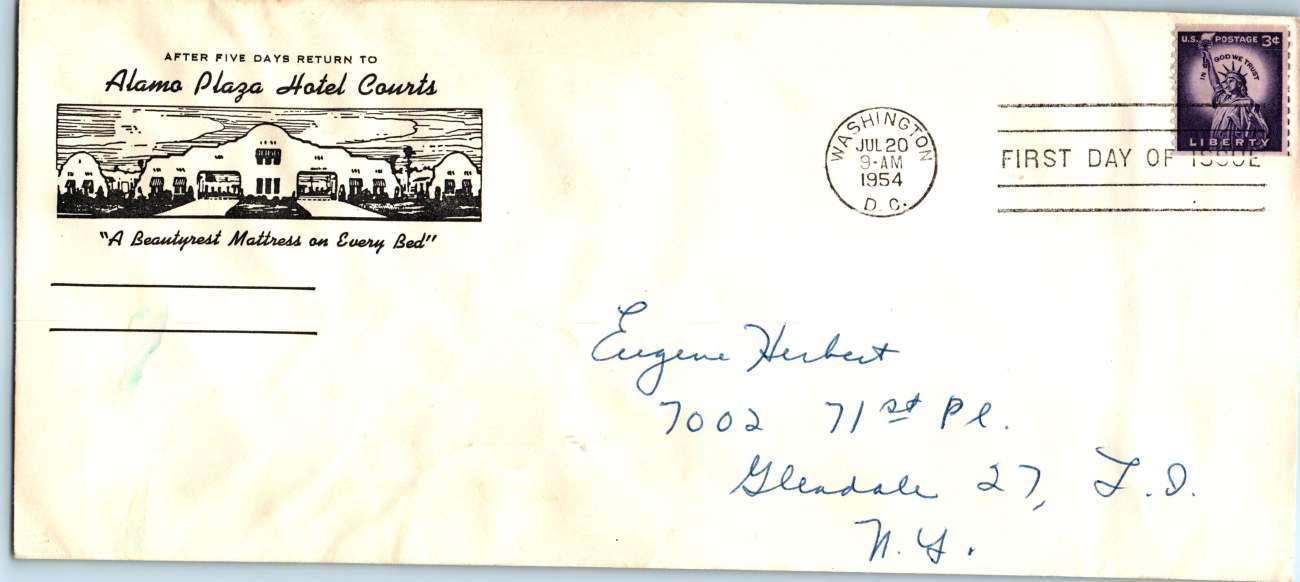 AFTER FIVE DAYS RETURN TO
Alamo Plaza Hotel Courts
"A Beautyrest Mattress on Every Bed"
WASHINGTON
JUL 20
9-AM
1954
D. C.
FIRST DAY OF ISSUE
U.S. POSTAGE 3¢
IN GOD WE TRUST
LIBERTY
Eugene Herbert
7002 71st Pl.
Glendale 27, L.I.
N.Y.